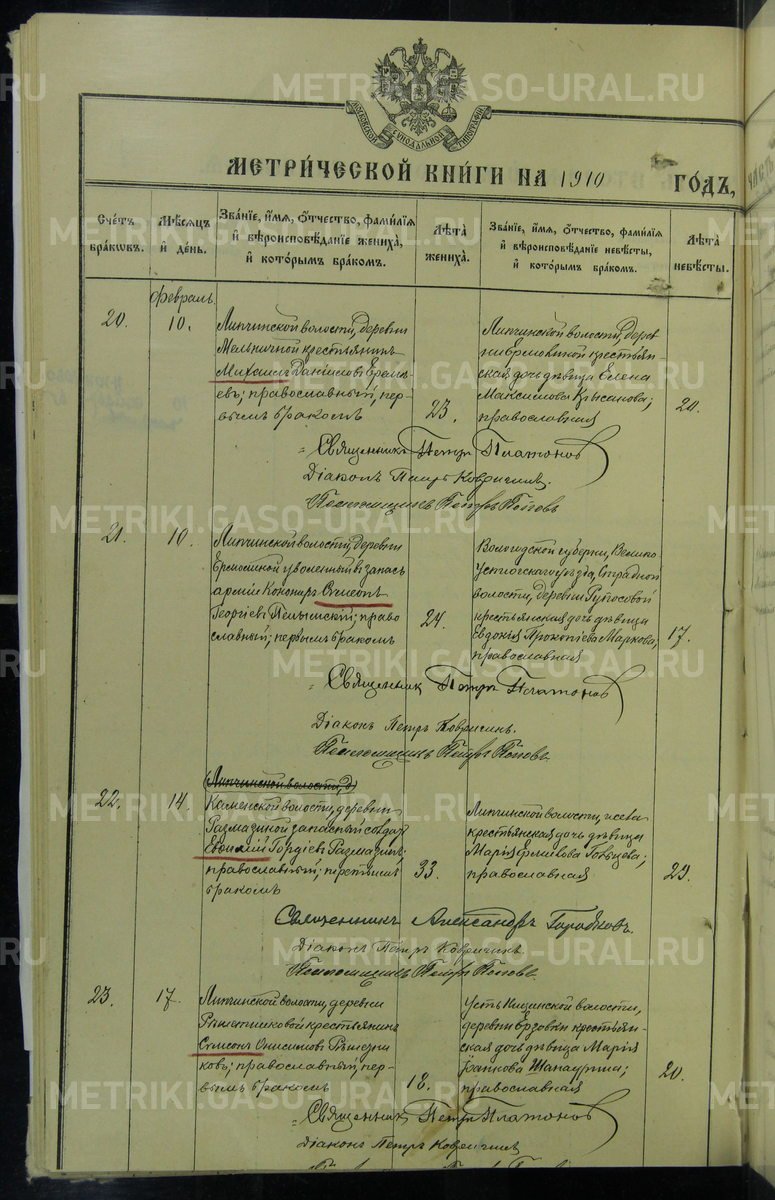 METRIKI.GASO-URAL.RU
МОСКОВСКОЙ СѴНОДАЛЬНОЙ ТИПОГРАФІИ
МЕТРИ́ЧЕСКОЙ КНИ́ГИ НА 1910 ГО́ДЪ,
Сче́тъ бра́ковъ.
Мѣ́сяцъ и҆ де́нь.
Зва́нїе, и҆́мя, ѻ҆́тчество, фами́лїя
и҆ вѣроисповѣ́данїе жениха̀,
и҆ кото́рымъ бра́комъ.
Лѣ́та жениха̀.
Зва́нїе, и҆́мя, ѻ҆́тчество, фами́лїя
и҆ вѣроисповѣ́данїе невѣ́сты,
и҆ кото́рымъ бра́комъ.
Лѣ́та невѣ́сты.
Февраль
20.
10.
Липчинской волости, деревни
Мельничной крестьянинъ
Михаилъ Даніиловъ
православный, пер-
вымъ бракомъ
23.
Липчинской волости, дерев
крестьян-
ская дочь дѣвица Елена
Максимова Крысанова;
православная
20.
Священникъ Петръ Платоновъ
Діаконъ Петръ
Псаломщикъ Петръ Поповъ
21.
10.
Липчинской волости, деревни
Ермолиной уволенный въ запасъ
арміи Канониръ Симеонъ
Георгіевъ Пелымскій; право
славный; первымъ бракомъ
24.
Вологодской губерніи, Велико-
Устюгскаго уѣзда, Страдной
волости, деревни
крестьянская дочь дѣвица
Евдокія Прокопіева Маркова;
православная
17.
Священник Петръ Платоновъ
Діаконъ Петръ
Псаломщикъ Петръ Поповъ.
(Липчинской волости, д)
22.
14.
Каменской волости, деревни
Размазиной запасный солдатъ
Гордіевъ Размазинъ;
православный; третьимъ
бракомъ
33.
Липчинской волости, и села
крестьянская дочь дѣвица
Марія
православная
29.
Священникъ Александръ
Діаконъ Петръ
Псаломщикъ Петръ Поповъ.
23.
17.
Липчинской волости, деревни
Рѣшетниковой крестьянинъ
Симеонъ Онисимовъ Рѣшетни
ковъ; православный, пер-
вымъ бракомъ
18.
Усть Ницинской волости,
деревни Ерзовки крестьян-
ская дочь дѣвица Марія
православная
20.
Священникъ Петръ Платоновъ
Діаконъ Петръ